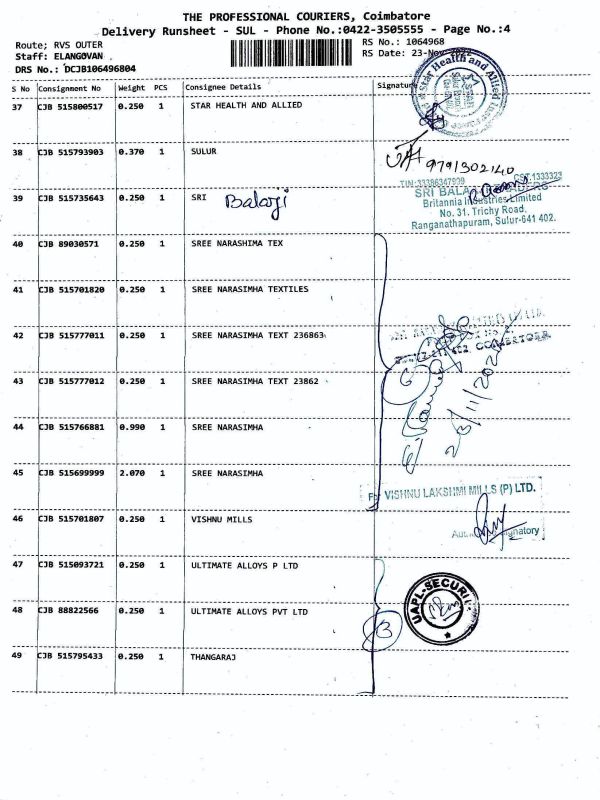 THE PROFESSIONAL COURIERS, Coimbatore
Delivery Runsheet - SUL - Phone No.:0422-3505555 - Page No.:4
Route; RVS OUTER
RS No.: 1064968
Staff: ELANGOVAN
RS Date: 23-Nov-2022
DRS No.: DCJB106496804
S No Consignment No Weight PCS Consignee Details Signature
37 CJB 515800517 0.250 1 STAR HEALTH AND ALLIED
Star Health and Allied
38 CJB 515793903 0.370 1 SULUR
9791302140
TIN:33386347999 CST.1333329
39 CJB 515735643 0.250 1 SRI Balaji
SRI BALAJI TRADERS
Britannia Industries Limited
No. 31. Trichy Road,
Ranganathapuram, Sulur-641 402.
40 CJB 89030571 0.250 1 SREE NARASHIMA TEX
41 CJB 515701820 0.250 1 SREE NARASIMHA TEXTILES
42 CJB 515777011 0.250 1 SREE NARASIMHA TEXT 236863
COIMBATORE
43 CJB 515777012 0.250 1 SREE NARASIMHA TEXT 23862
6
23/11/2022
44 CJB 515766881 0.990 1 SREE NARASIMHA
45 CJB 515699999 2.070 1 SREE NARASIMHA
For VISHNU LAKSHMI MILLS (P) LTD.
46 CJB 515701807 0.250 1 VISHNU MILLS
Authorised Signatory
47 CJB 515093721 0.250 1 ULTIMATE ALLOYS P LTD
UAPL-SECURITY
48 CJB 88822566 0.250 1 ULTIMATE ALLOYS PVT LTD
3
49 CJB 515795433 0.250 1 THANGARAJ